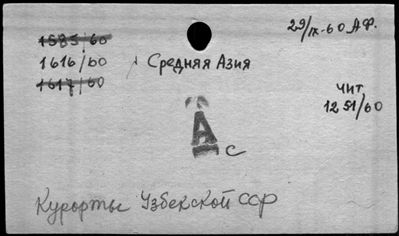 29/IX-60 А.Ф.
1585/60
1616/60 Средняя Азия
1617/60
чит.
1251/60
А с
Курорты Узбекской ССР